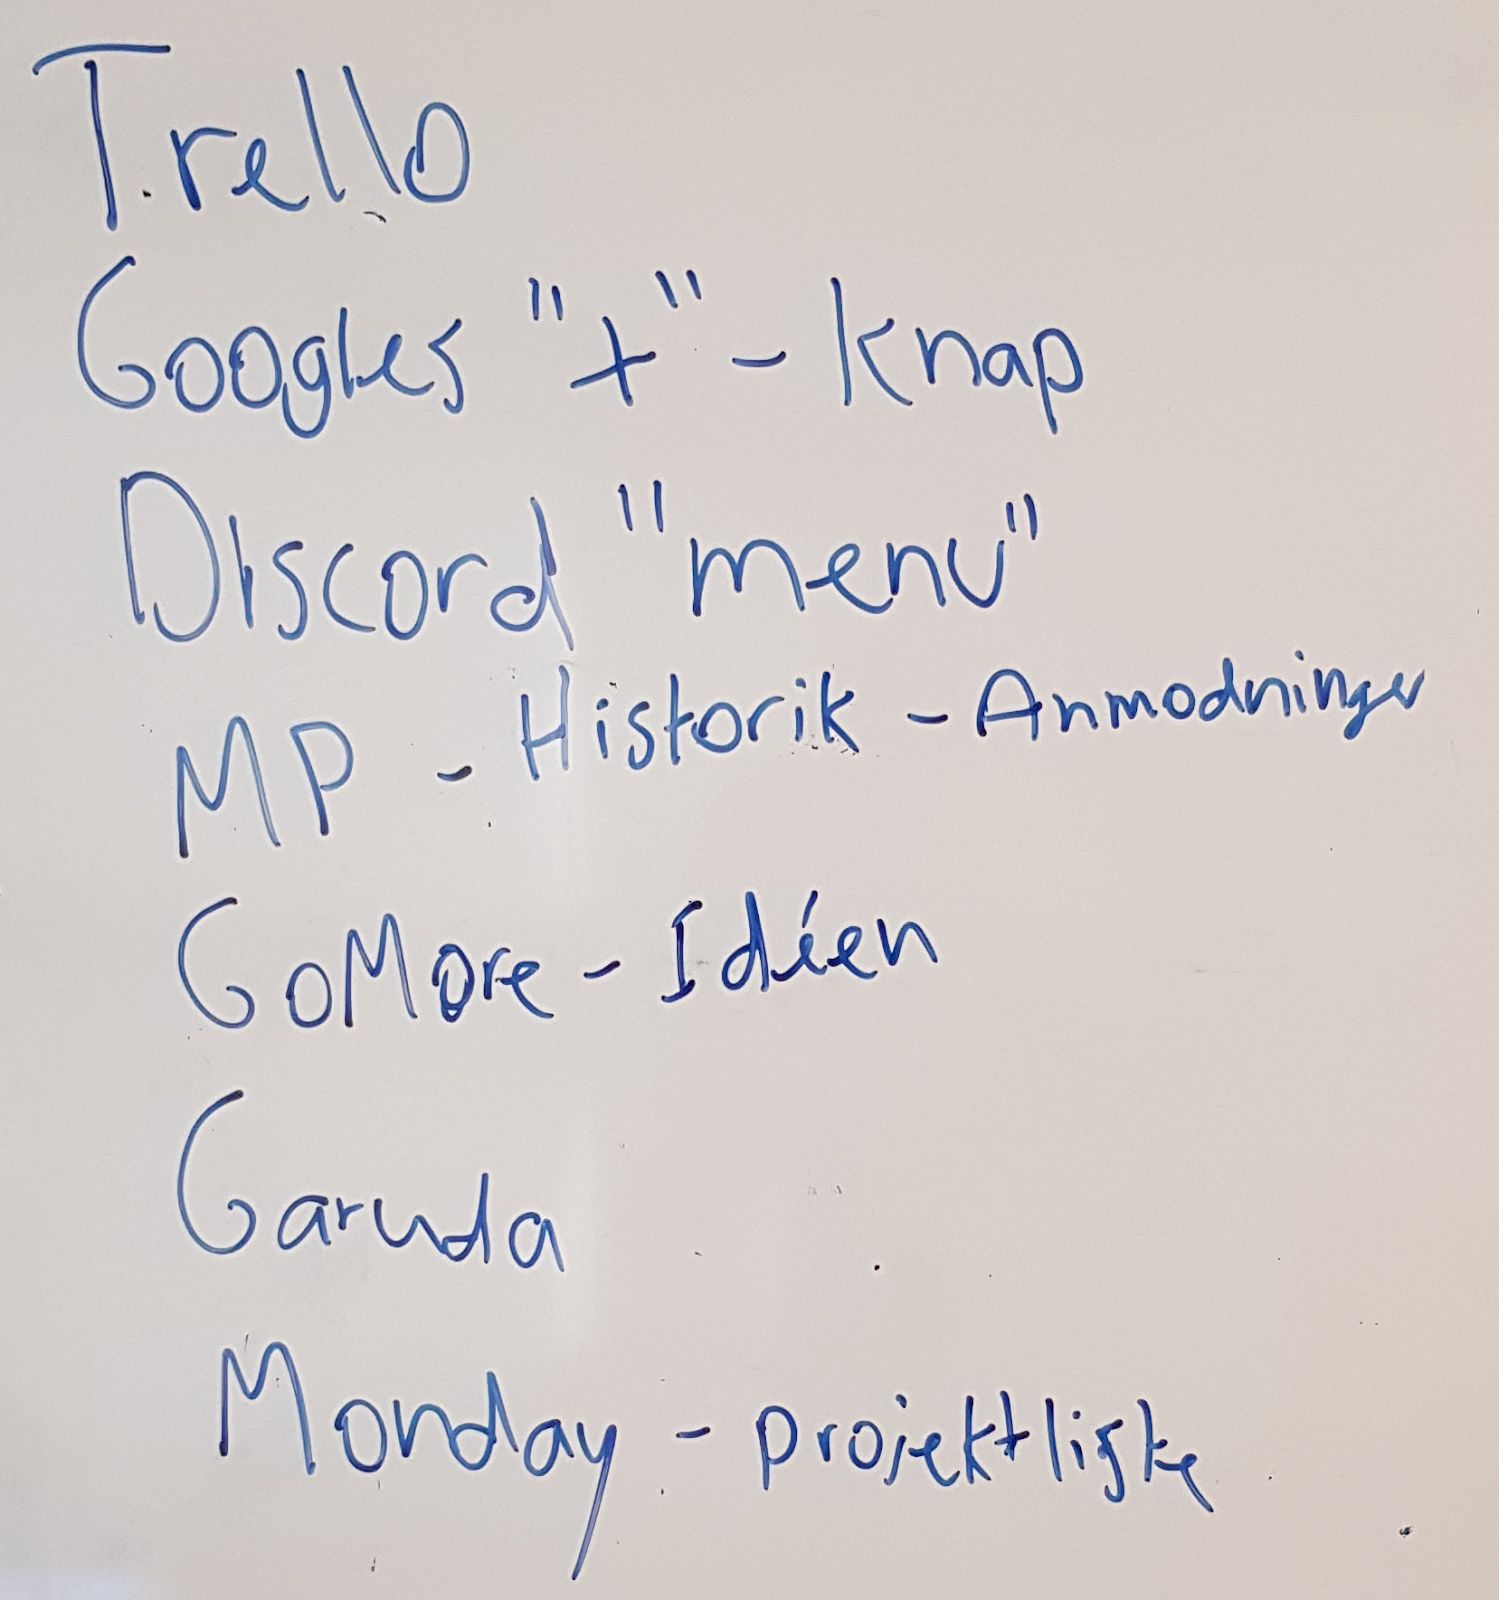 Trello
Googles "+" - knap
Discord "menu"
MP - Historik - Anmodninger
GoMore - Idéen
Garuda
Monday - projektliste